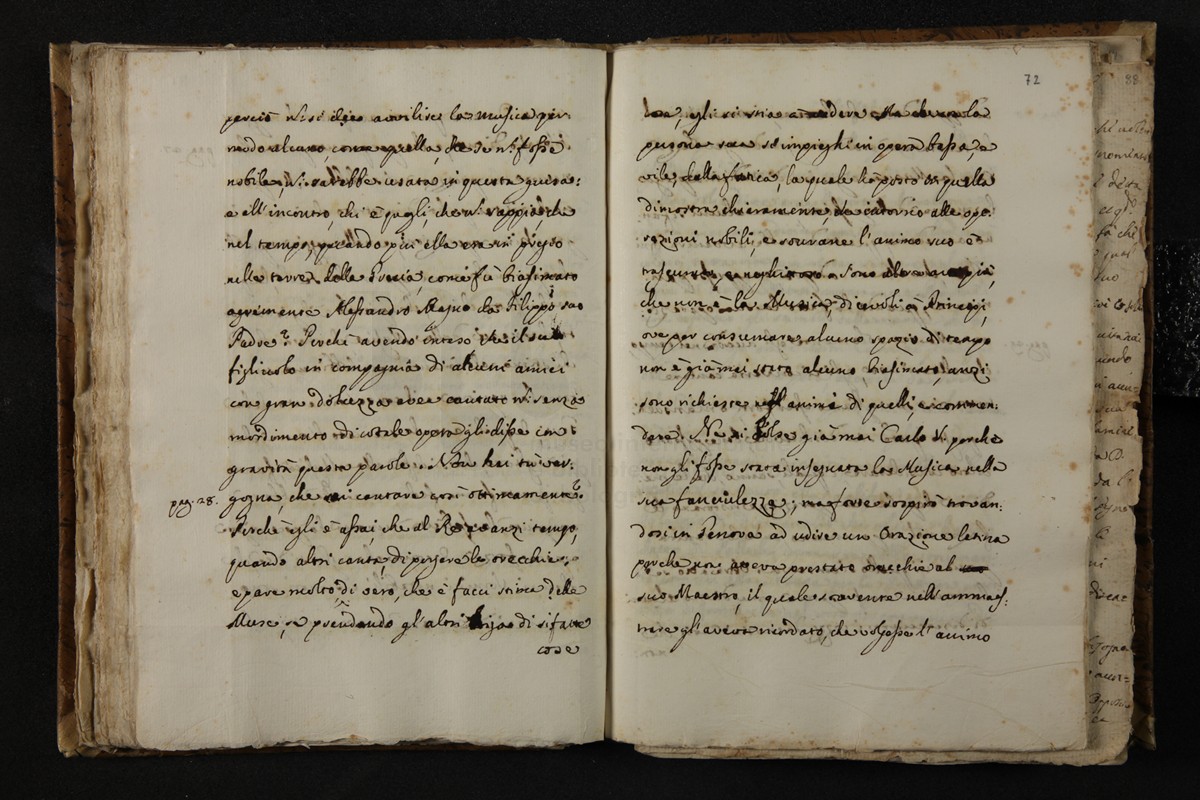 perciò si dee avvilire la Musica per
modo alcuno, come quella, che se nō fosse
nobile, nō sarebbe usata in questa guisa:
e all' incontro, chi è quegli, che nō sappia che
nel tempo, quando più ella era in pregio
nella terra della Grecia, come fù biasimato
agramente Alessandro Magno da Filippo suo
Padre? Perchè avendo inteso che il suo
figliuolo in compagnia di alcuni amici
con gran dolcezza avea cantato nō senza
mordimento di cotale opera gli disse con
gravità queste parole. Non hai tu ver:
pag. 28. gogna, che sai cantare così ottimamente?
Perchè egli è assai, che al Re avanzi tempo,
quando altri canta, di porgere le orecchie;
e pare molto di vero, che è facci stima delle
Muse, se prendendo gl' altri di si fatte
cose
72
cosa, egli si stia a
persona sua s' impieghi in opera bassa, e
vile, della fatica, la quale hà posto in quella
dimostra chiaramente, che intorno alle ope:
razioni nobili, e sovrane l' animo suo è
trascurato, e neghittoso. Sono
che non è la Musica, dicevoli à Principi,
ove per consumare alcuno spazio di tempo
non è già mai stato alcuno biasimato, anzi
sono richieste animi di quelli
dare. Ne si dolse già mai Carlo V. perchè
non gli fosse stata insegnata la Musica nella
sua fanciulezza; ma forte sospirò trovan:
dosi in Genova ad udire una Orazione latina
perchè non aveva prestate orecchie al
suo Maestro, il quale sovente nell' ammaes:
trare gl' aveva ricordato, che volgesse l' animo
88